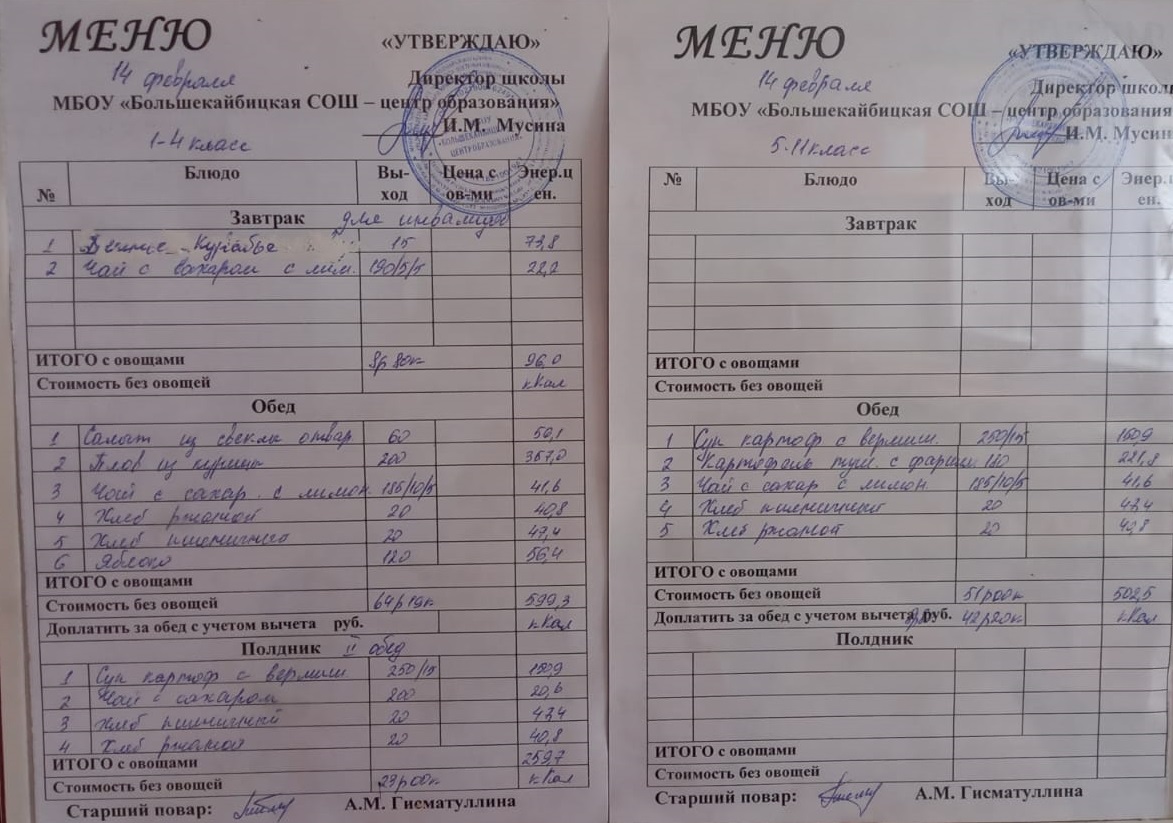 МЕНЮ
«УТВЕРЖДАЮ»
14 февраля
Директор школы
МБОУ «Большекайбицкая СОШ – центр образования»
И.М. Мусина
1-4 класс
№ Блюдо Вы-ход Цена с ов-ми Энер.ц ен.
Завтрак для инвалидов
1 Печенье Курабье 15 73,8
2 Чай с сахаром с лим. 190/5/5 22,2
ИТОГО с овощами 8р 80к 96,0
Стоимость без овощей кКал
Обед
1 Салат из свеклы отвар 60 56,1
2 Плов из курицы 200 357,0
3 Чай с сахар. с лимон. 185/10/5 41,6
4 Хлеб ржаной 20 40,8
5 Хлеб пшеничного 20 47,4
6 Яблоко 120 56,4
ИТОГО с овощами
Стоимость без овощей 64р19к 599,3
Доплатить за обед с учетом вычета руб. кКал
Полдник II обед
1 Суп картоф с вермиш 250/15 150,9
2 Чай с сахаром 200 20,6
3 Хлеб пшеничный 20 47,4
4 Хлеб ржаной 20 40,8
ИТОГО с овощами 259,7
Стоимость без овощей 23р00к кКал
Старший повар: А.М. Гисматуллина
МЕНЮ
«УТВЕРЖДАЮ»
14 февраля
Директор школ
МБОУ «Большекайбицкая СОШ – центр образования
И.М. Мусин
5-11 класс
№ Блюдо Вы-ход Цена с ов-ми Энер. ен.
Завтрак
ИТОГО с овощами
Стоимость без овощей
Обед
1 Суп картоф с вермиш. 250/15 150,9
2 Картофель туш. с фаршем 180 221,8
3 Чай с сахар с лимон. 185/10/5 41,6
4 Хлеб пшеничный 20 47,4
5 Хлеб ржаной 20 40,8
ИТОГО с овощами
Стоимость без овощей 51р00к 502,5
Доплатить за обед с учетом вычета руб. 42р20к кКал
Полдник
ИТОГО с овощами
Стоимость без овощей
Старший повар: А.М. Гисматуллина